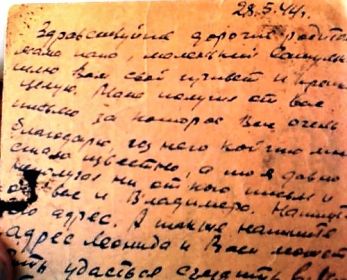 28.5.44 г.
Здравствуйте дорогие родители
мама папа, маленький
шлю Вам свой привет и крепко
целую. Мама получил от вас
письмо за которое Вам очень
благодарю, из него кой что мне
стало известно, а то я давно
не получал ни от кого писем и
от вас и Владимера.
его адрес. А также напишите
адрес Леонида и Васи может
удасться